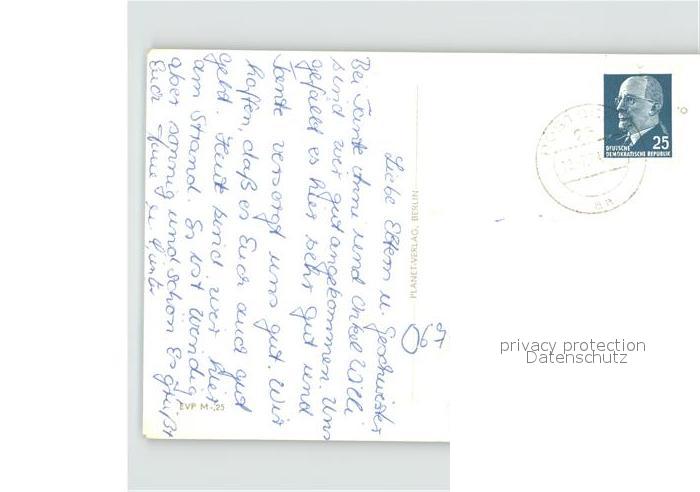 Liebe Eltern u. Geschwister
Bei Tante Anni und Onkel Willi
sind wir gut angekommen. Uns
gefällt es hier sehr gut und
Tante versorgt uns gut. Wir
hoffen, daß es Euch auch gut
geht. Heute sind wir hier
am Strand. Es ist windig
aber sonnig und schön. Es grüßt
Euch u. Günter
PLANET-VERLAG, BERLIN
EVP M -,25
067
DEUTSCHE
DEMOKRATISCHE REPUBLIK
25
privacy protection
Datenschutz